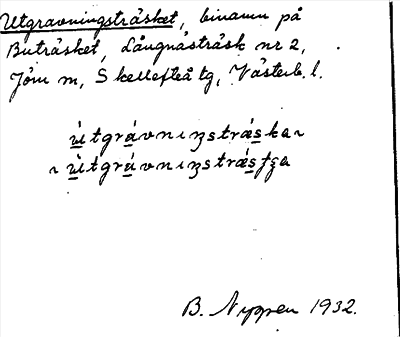 Utgravningsträsket, binamn på
Buträsket, Långnästräsk nr 2,
Jörn m, Skellefteå tg, Västerb. l.
ùtgrávnıŋsträ́ska ~
~ ùtgrávnıŋsträ́sʃʒa
B. Nygren 1932.